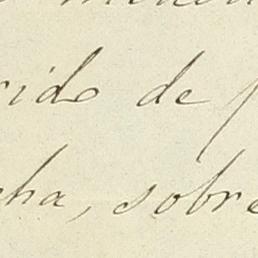 rido de
cha, sobre